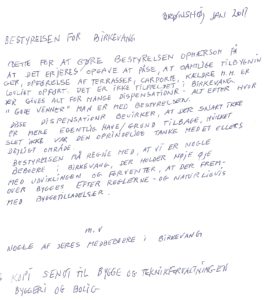 BRØNSHØJ JAN 2017
BESTYRELSEN FOR BIRKEVANG
DETTE FOR AT GØRE BESTYRELSEN OPMÆRSOM PÅ
AT DET ER JERES OPGAVE AT PÅSE, AT SAMTLIGE TILBYGNIN
GER, OPFØRELSE AF TERRASSER, CARPORTE, KÆLDRE M.M. ER
LOVLIGT OPFØRT. DET ER IKKE TILFÆLDET I BIRKEVANG.
DER GIVES ALT FOR MANGE DISPENSATIONER ALT EFTER HVOR
"GODE VENNER" MAN ER MED BESTYRELSEN.
DISSE DISPENSATIONER BEVIRKER, AT DER SNART IKKE
ER MERE EGENTLIG HAVE/GRUND TILBAGE, HVILKET
SLET IKKE VAR DEN OPRINDELIGE TANKE MED ET ELLERS
DEJLIGT OMRÅDE
BESTYRELSEN MÅ REGNE MED, AT VI ER NOGLE
BEBOERE I BIRKEVANG, DER HOLDER NØJE ØJE
MED UDVIKLINGEN OG FORVENTER, AT DER FREM-
OVER BYGGES EFTER REGLERNE - OG NATURLIGVIS
MED BYGGETILLADELSER.
M.V
NOGLE AF JERES MEDBEBOERE I BIRKEVANG
KOPI SENDT TIL BYGGE OG TEKNIKFORVALTNINGEN
BYGGERI OG BOLIG